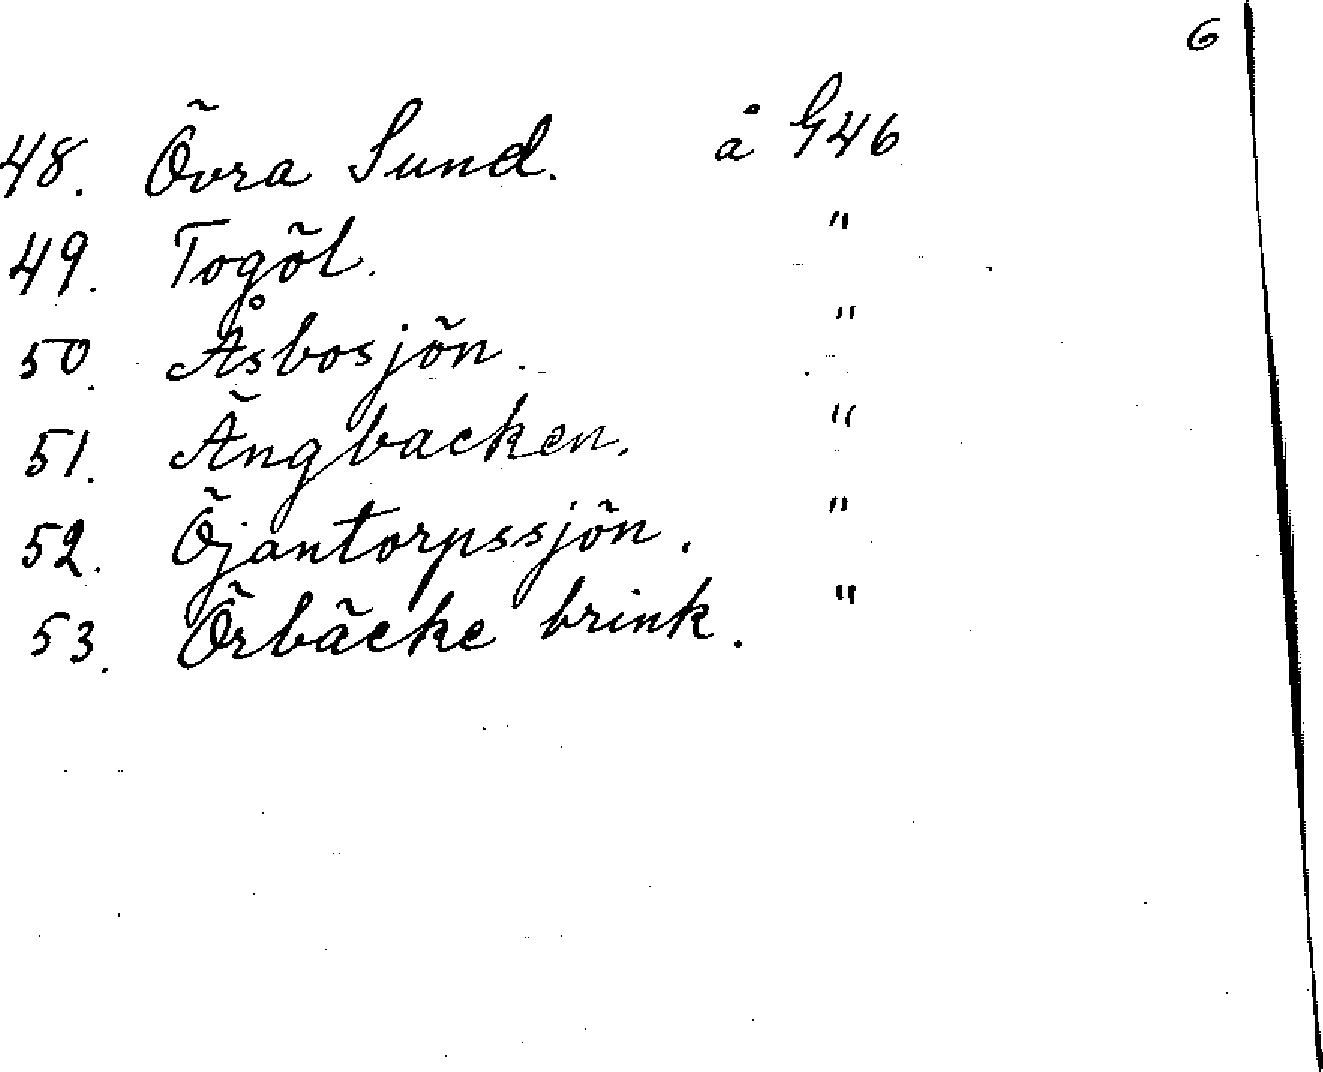 6
48. Övra Sund. å G46
49. Togöl. "
50. Åsbosjön. "
51. Ängbacken. "
52. Öjantorpssjön. "
53. Örbäcke brink. "